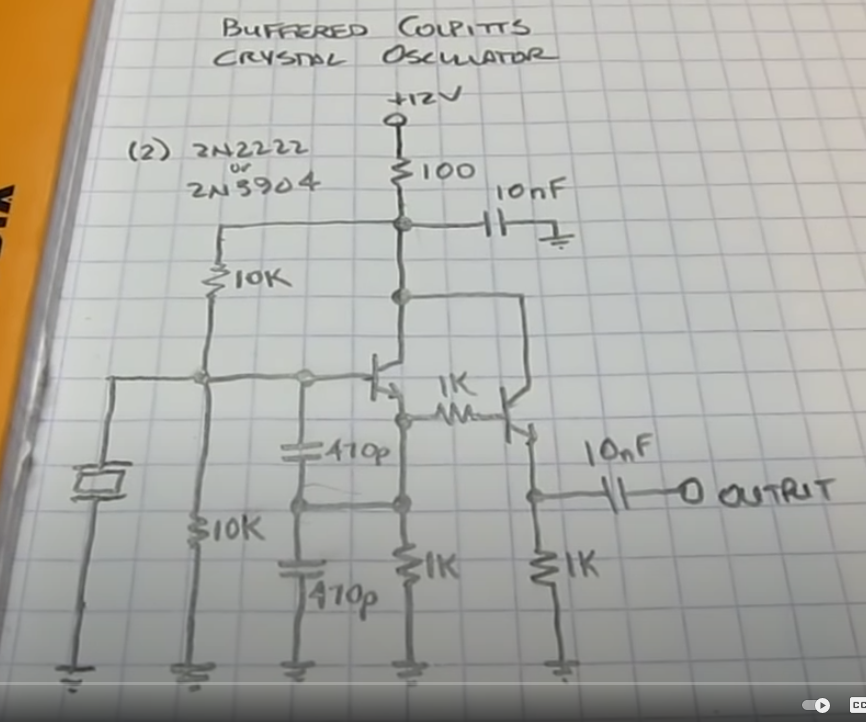 BUFFERED COLPITTS
CRYSTAL OSCILLATOR
+12V
(2) 2N2222
or
2N3904
100
10nF
10K
1K
470p
10nF
OUTPUT
10K
470p
1K
1K
CC